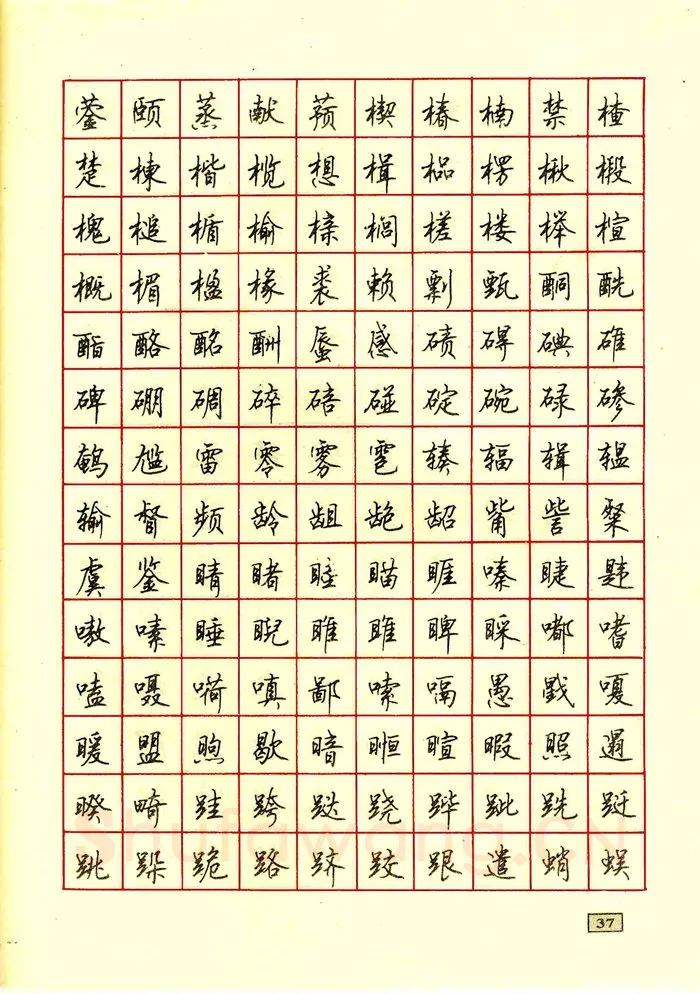 蓥颐蒸献蓣楔椿楠禁楂
楚楝楷榄想楫榀楞楸椴
槐槌楯榆榇榈槎楼榉楦
概楣楹椽裘赖剽甄酮酰
酯酪酩酬蜃感碛碍碘碓
碑硼碉碎碚碰碇碗碌碜
鹌尴雷零雾雹辏辐辑辒
输督频龄龃龅龆觜訾粲
虞鉴睛睹睦瞄睚嗪睫韪
嗷嗉睡睨睢雎睥睬嘟嗜
嗑嗫嗬嗔鄙嗦嗝愚戥嗄
暖盟煦歇暗暅暄暇照遢
暌畸跬跨跶跷跸跐跣跹
跳跺跪路跻跤跟遣蛸蜈
37
Shufawang.CN